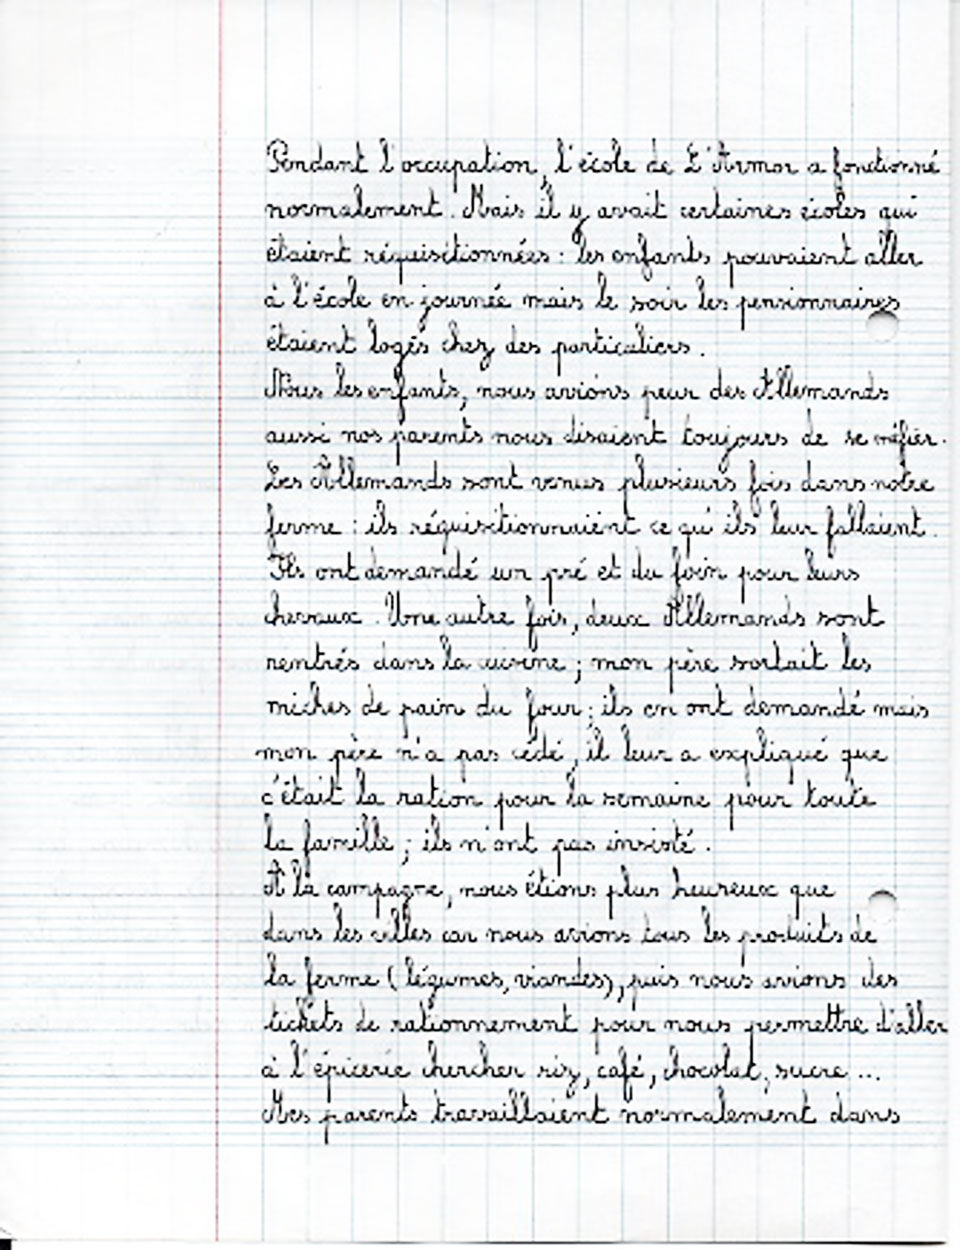 Pendant l'occupation, l'école de L'Armor a fonctionné
normalement. Mais il y avait certaines écoles qui
étaient réquisitionnées : les enfants pouvaient aller
à l'école en journée mais le soir les pensionnaires
étaient logés chez des particuliers.
Nous les enfants, nous avions peur des Allemands
aussi nos parents nous disaient toujours de se méfier.
Les Allemands sont venus plusieurs fois dans notre
ferme : ils réquisitionnaient ce qu'ils leur fallaient.
Ils ont demandé un pré et du foin pour leurs
chevaux. Une autre fois, deux Allemands sont
rentrés dans la cuisine ; mon père sortait les
miches de pain du four ; ils en ont demandé mais
mon père n'a pas cédé, il leur a expliqué que
c'était la ration pour la semaine pour toute
la famille ; ils n'ont pas insisté.
A la campagne, nous étions plus heureux que
dans les villes car nous avions tous les produits de
la ferme (légumes, viandes), puis nous avions des
tickets de rationnement pour nous permettre d'aller
à l'épicerie chercher riz, café, chocolat, sucre ...
Mes parents travaillaient normalement dans